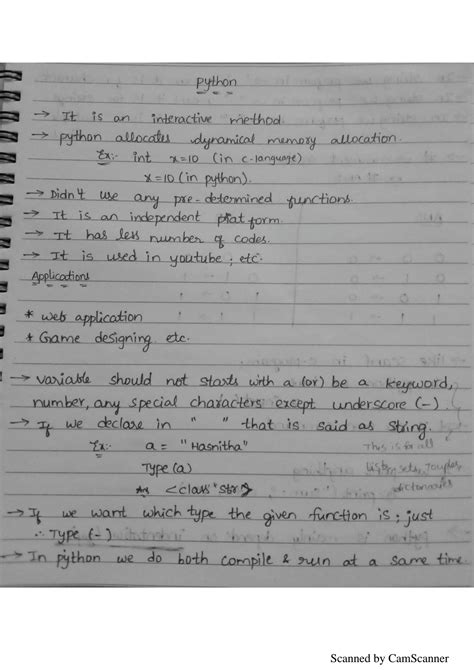 Python
→ It is an interactive method.
→ python allocates dynamical memory allocation.
Ex:- int x=10 (in c-language)
x=10 (in python).
→ Didn't use any pre-determined functions.
→ It is an independent plat form.
→ It has less number of codes.
→ It is used in youtube; etc.
Applications
* web application
* Game designing etc.
→ variable should not starts with a (or) be a keyword,
number, any special characters except underscore (-).
→ If we declare in " " that is said as string.
Ex:- a = "Hasnitha" This is for all
Type (a) lists, sets, Touples
<class "str"> dictonaries
→ If we want which type the given function is; just
∴ Type (-)
→ In python we do both compile & run at a same time.
Scanned by CamScanner